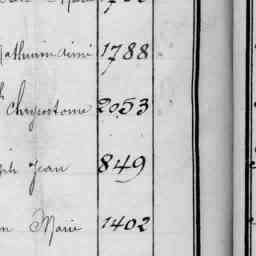 Mathurin aimé 1788
Chrysostome 2053
ph Jean 849
Marie 1402